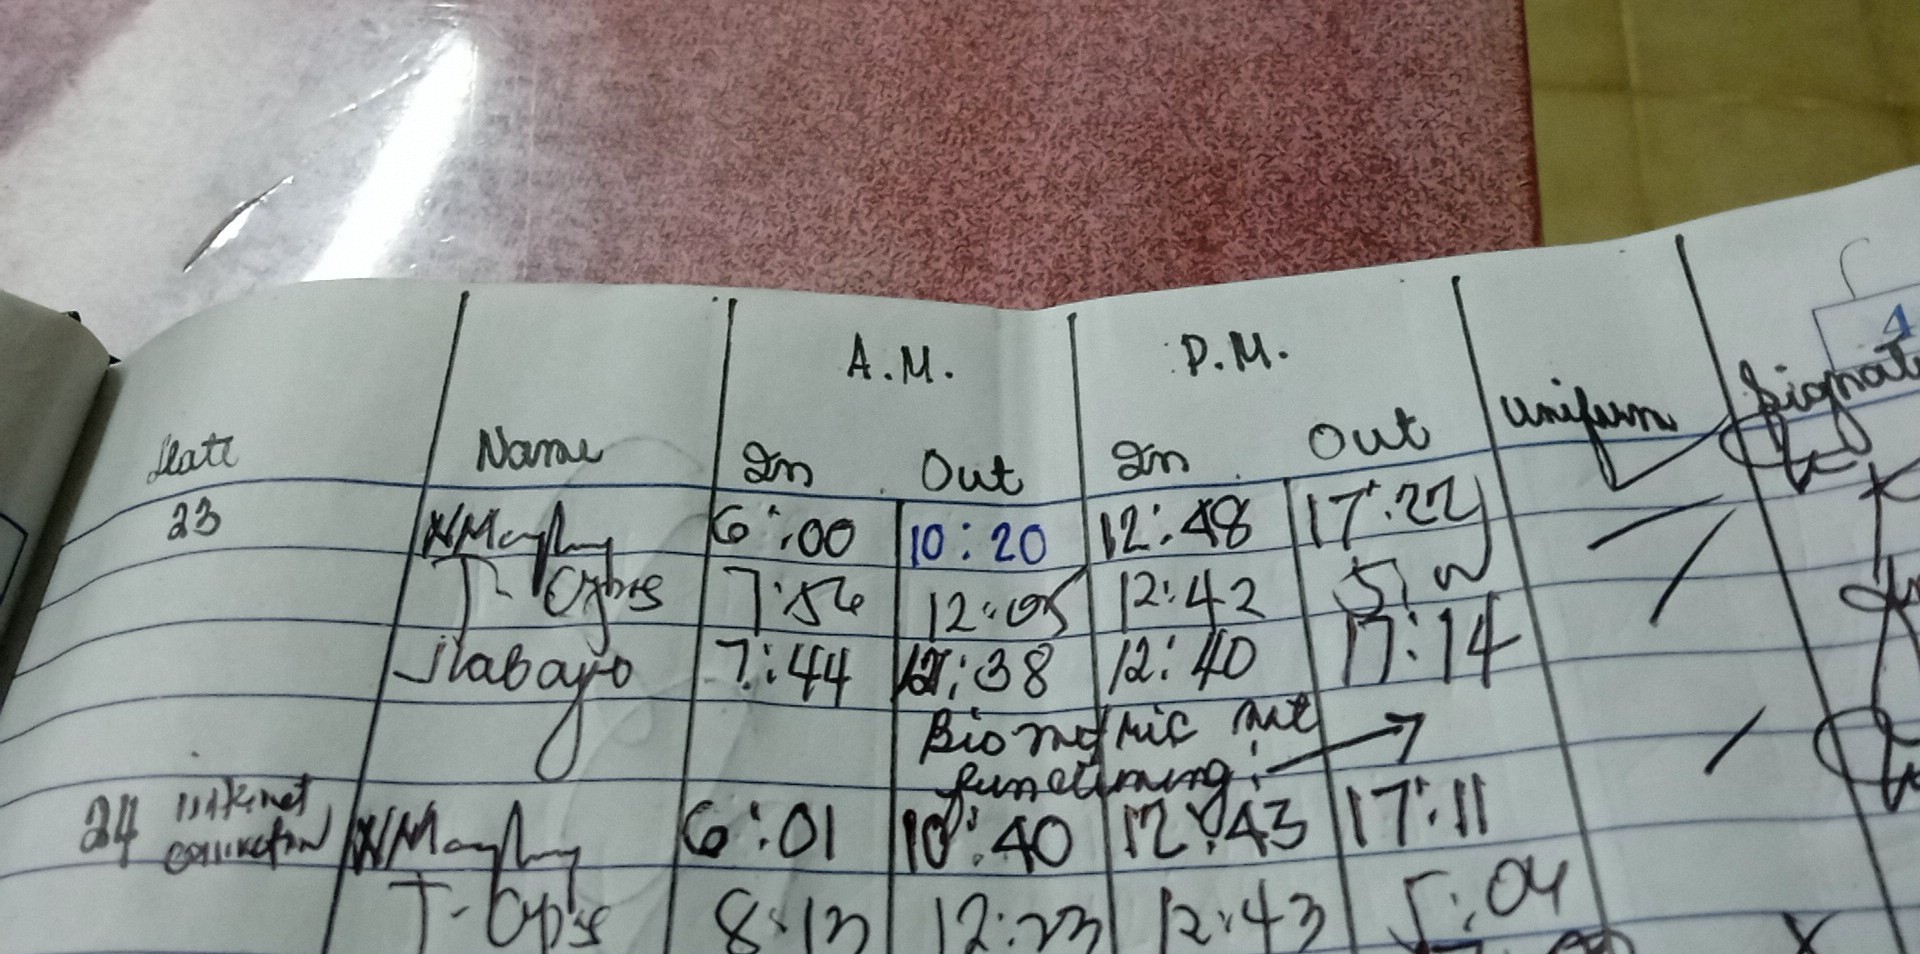 A.M. P.M.
Date Name In Out In Out Uniform Signat
4
23 6:00 10:20 12:48 17:22
7:56 12:05 12:42
Jlabayo 7:44 12:38 12:40 17:14
Biometric not
functioning
24 internet 6:01 10:40 12:43 17:11
connection
8:13 12:23 12:43 5:04